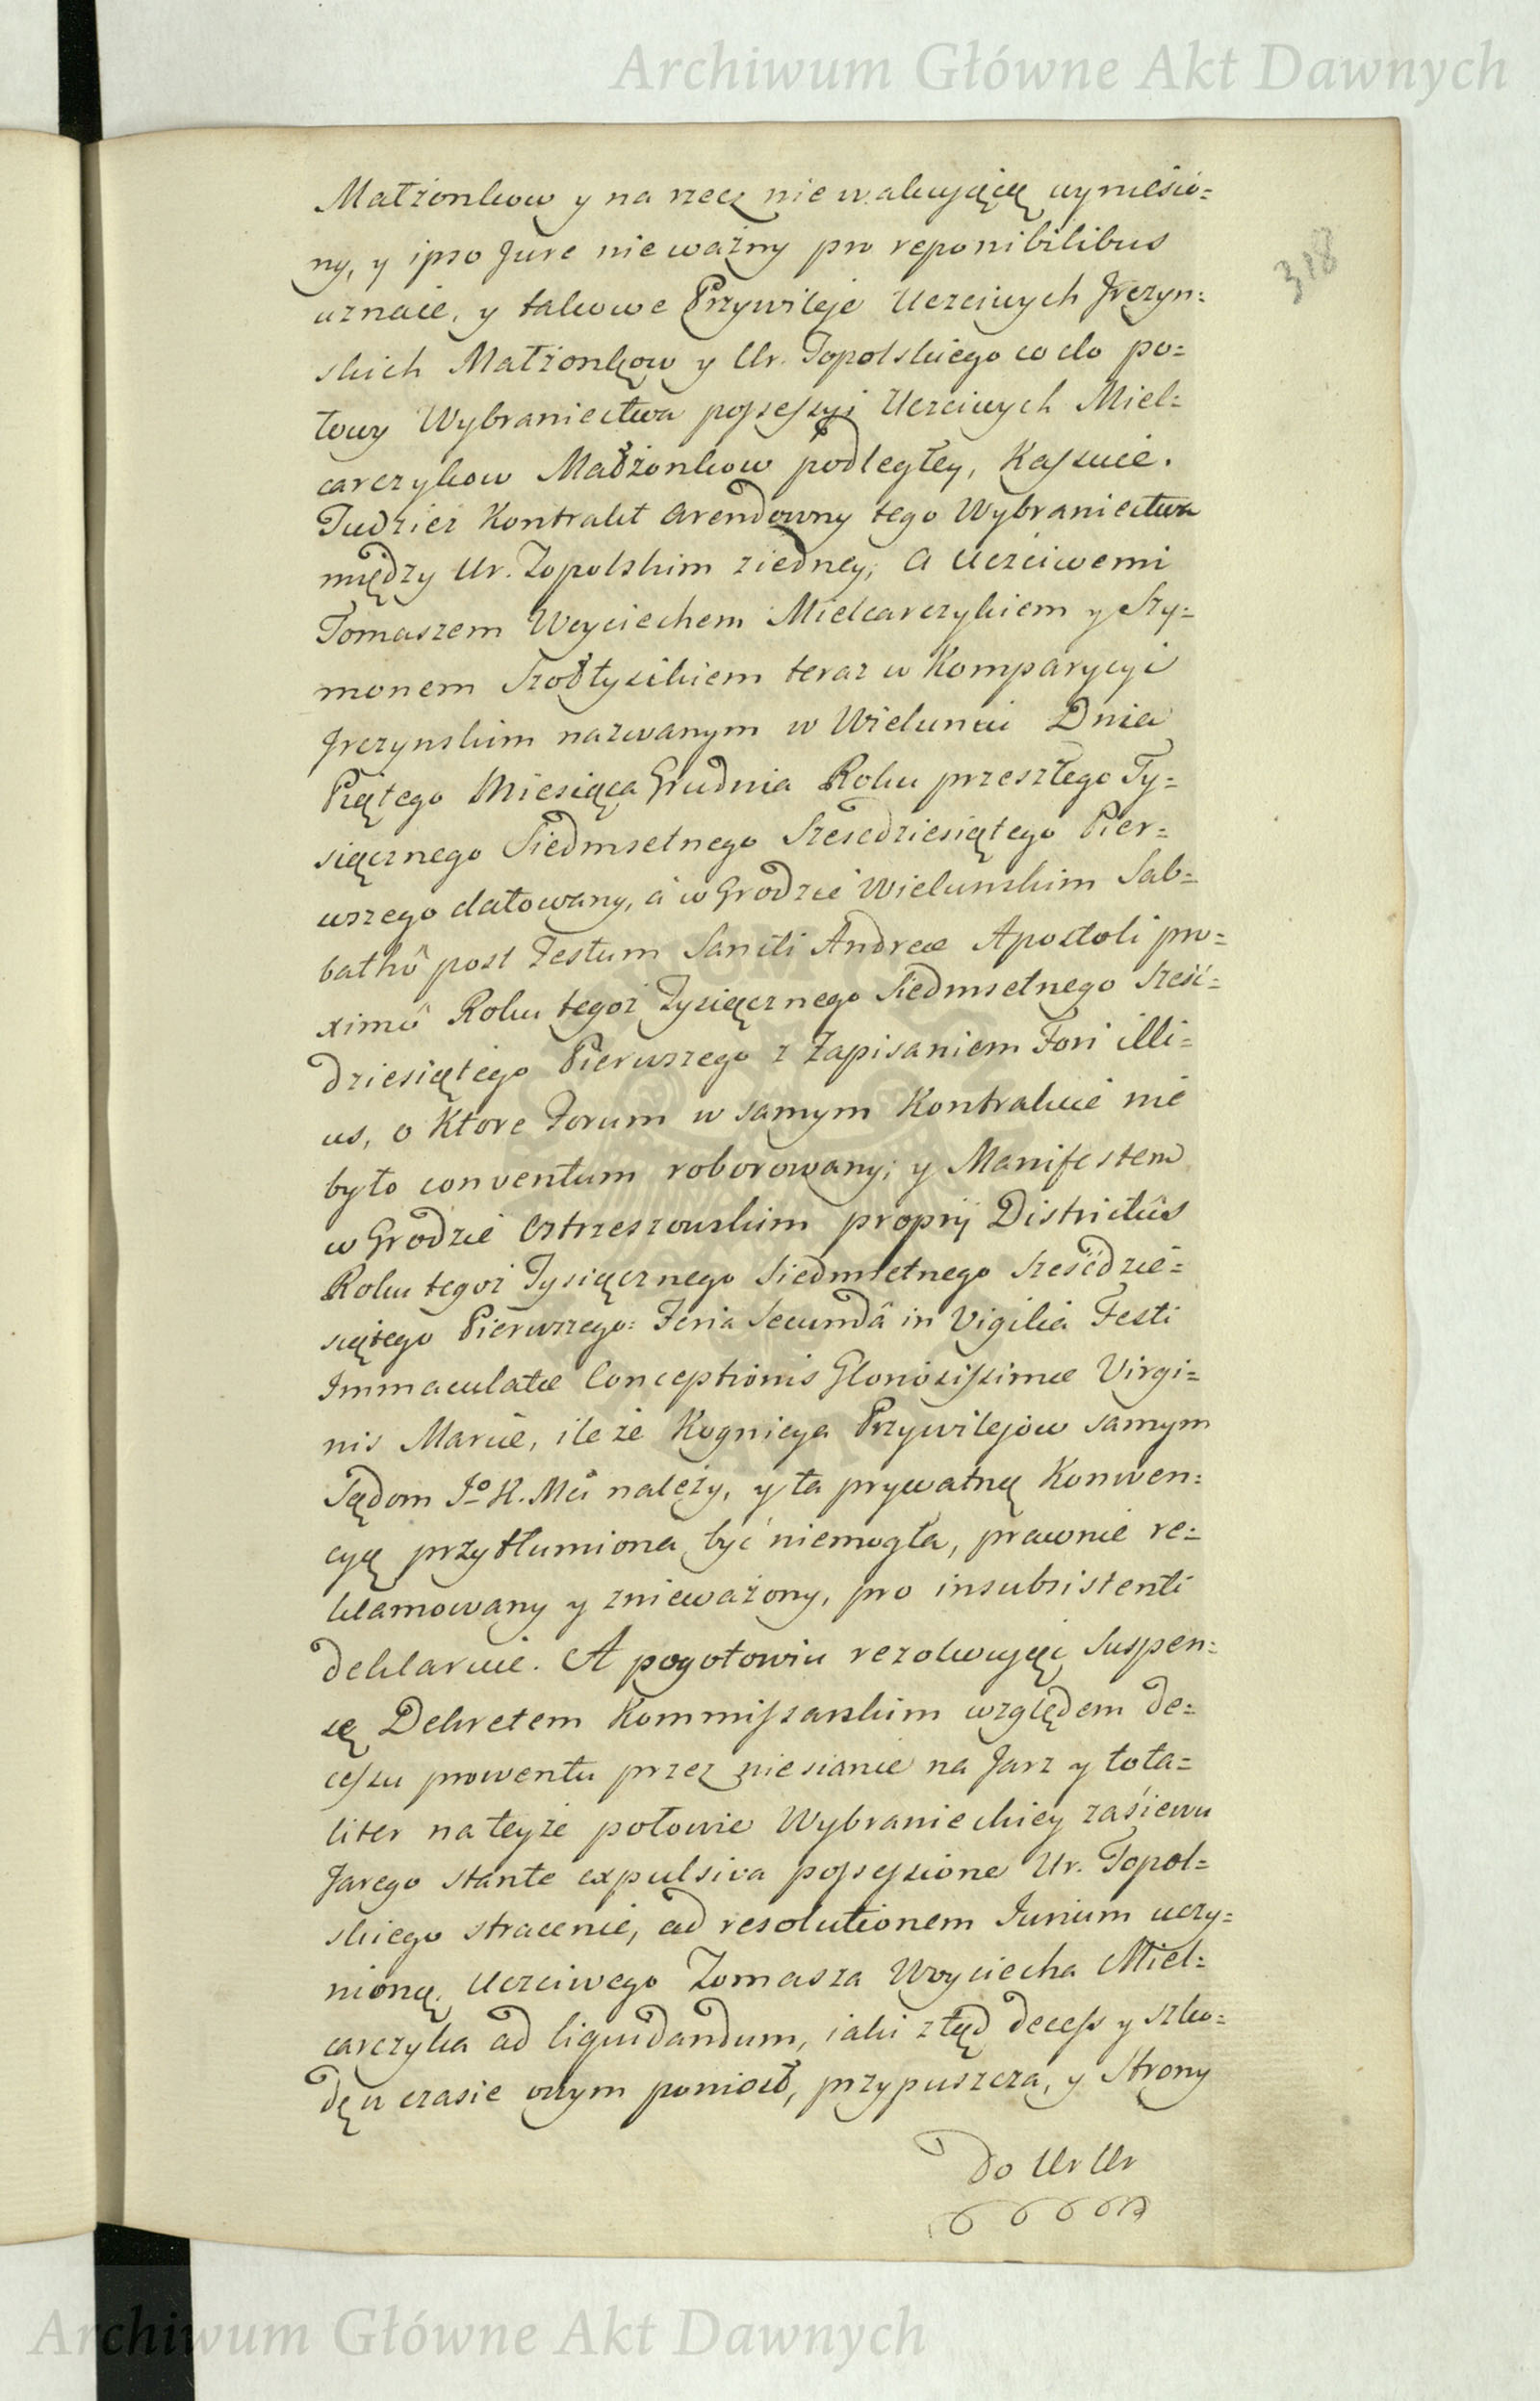 Archiwum Główne Akt Dawnych
318
Małżonkow y na rzecz niewakuiącą wyniesio=
ny, y ipso Jure nieważny pro reponibilibus
uznaie, y takowe Przywileje Uczciwych Jrzyn=
skich Małżonkow y Ur. Topolskiego co do po=
łowy Wybraniectwa possessyi Uczciwych Miel=
carczykow Małżonkow podległey, Kassuie.
Tudzież Kontrakt Arendowny tego Wybraniectwa
między Ur. Topolskim ziedney, a Uczciwemi
Tomaszem Woyciechem Mielcarczykiem y Szy=
monem Szołtysikiem teraz w Komparycyi
Jrzynskim nazwanym w Wieluniu Dnia
Piątego Miesiąca Grudnia Roku przeszłego Ty=
siącznego Siedmsetnego Szescdziesiątego Pier=
wszego datowany, á w Grodzie Wielunskim Sab=
bathô post Festum Sancti Andreæ Apostoli pro=
ximô Roku tegoż Tysiącznego Siedmsetnego Sześć=
dziesiątego Pierwszego z Zapisaniem Fori illi=
us, o Ktore Forum w samym Kontrakcie nie
było conventum roborowany; y Manifestem
w Grodzie Ostrzeszowskim proprij Districtûs
Roku tegoż Tysiącznego Siedmsetnego Sześćdzie=
siątego Pierwszego: Feria Secundâ in Vigilia Festi
Immaculatæ Conceptionis Gloriosissimæ Virgi=
nis Mariæ, ile że Kognicya Przywilejow samym
Sądom Jo K. Mci należy, y ta prywatną Konwen=
cyą przytłumiona być niemogła, prawnie re=
klamowany y znieważony, pro insubsistenti
deklaruie. A pogotowiu rezolwuiąc Suspen=
sę Dekretem Kommissarskim względem de=
cessu prowentu przez niesianie na Jarz y tota=
liter na teyże połowie Wybranieckiey zasiewu
Jarego stante expulsiva possessione Ur. Topol=
skiego stracenie, ad resolutionem Jurium uczy=
nioną, Uczciwego Tomasza Woyciecha Miel=
carczyka ad liquidandum, iaki ztąd decess y szko=
dę w czasie owym poniosł, przypuszcza, y Strony
do Ur Ur
Archiwum Główne Akt Dawnych